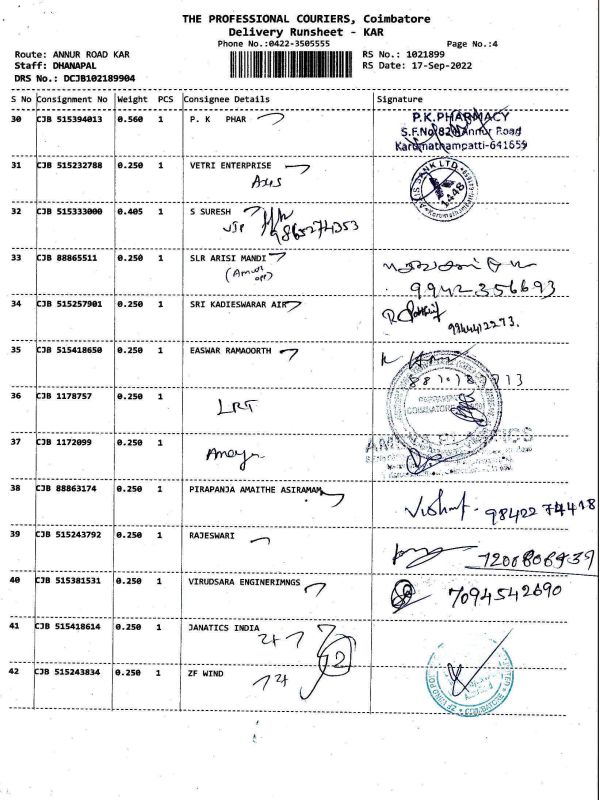 THE PROFESSIONAL COURIERS, Coimbatore
Delivery Runsheet - KAR
Phone No.:0422-3505555 Page No.:4
Route: ANNUR ROAD KAR RS No.: 1021899
Staff: DHANAPAL RS Date: 17-Sep-2022
DRS No.: DCJB102189904
S No Consignment No Weight PCS Consignee Details Signature
30 CJB 515394013 0.560 1 P. K PHAR
P.K.PHARMACY
S.F.No:82 Annur Road
Karumathampatti-641659
31 CJB 515232788 0.250 1 VETRI ENTERPRISE
Axis
1448
32 CJB 515333000 0.405 1 S SURESH
9865274353
33 CJB 88865511 0.250 1 SLR ARISI MANDI
9942356693
34 CJB 515257901 0.250 1 SRI KADIESWARAR AIR
9944412273.
35 CJB 515418650 0.250 1 EASWAR RAMAOORTH
36 CJB 1178757 0.250 1
LRT
COIMBATORE
37 CJB 1172099 0.250 1
38 CJB 88863174 0.250 1 PIRAPANJA AMAITHE ASIRAMAM
9842274418
39 CJB 515243792 0.250 1 RAJESWARI
40 CJB 515381531 0.250 1 VIRUDSARA ENGINERIMNGS
7094542690
41 CJB 515418614 0.250 1 JANATICS INDIA
2
42 CJB 515243834 0.250 1 ZF WIND